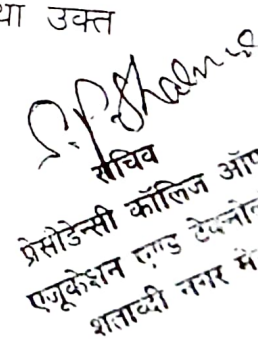 था उक्त
सचिव
प्रेसीडेन्सी कॉलिज ऑफ
एजूकेशन एण्ड
शताब्दी नगर मे